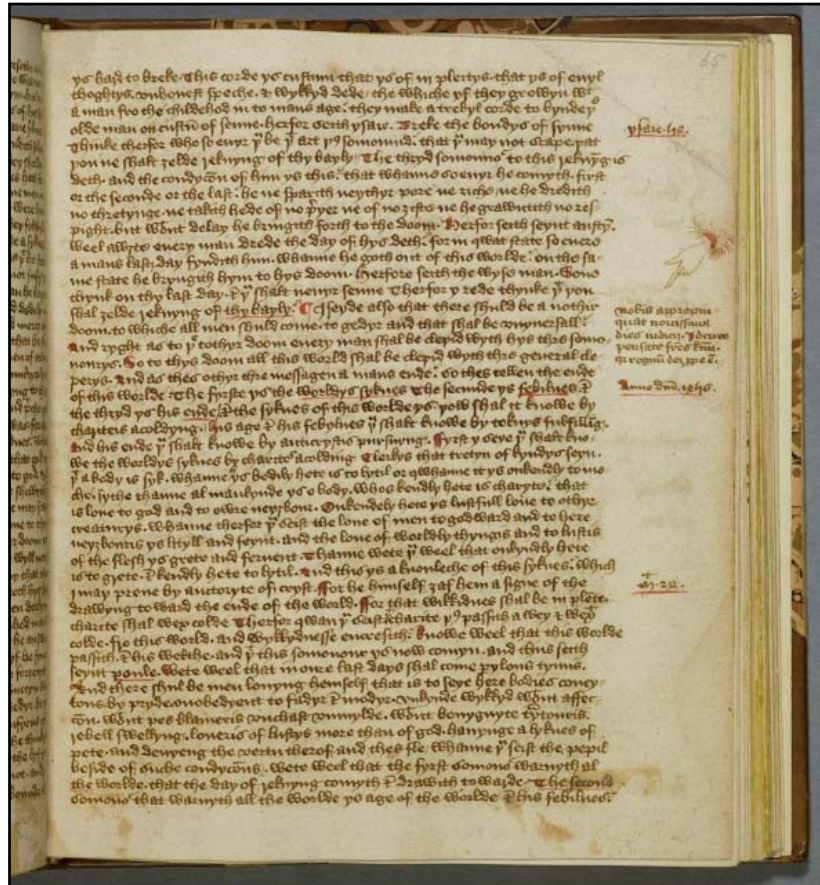 65
ys hard to breke. This corde ys custum that ys of in plertys. that ys of euyl
thoghtys. vnhonest speche. & wykkyd dede. the whiche yf they growyn wt
a man fro the childehod in to mans age. they make a trebyl corde to bynde ye
olde man on custū of senne. herfor seith ysaie. Breke the bondys of synne
Thinke therfor who so euyr þu be þt art þus somonnid. that þu may not scape. þat
þou ne shalt zelde reknyng of thy bayly The thryd somonus to this reknyg is
deth. and the condycōn of him ys this. that whanne so euyr he comyth. first
or the seconde or the last. he ne sparith neythyr pore ne riche. ne he dredith
no thretynge. ne takith hede of no pryer ne of no ziftes ne he grawntith no res
pight. but wtout delay he bringith forth to the doom. Herfor seith seynt austyn.
weel awyte euery man drede the day of hys deth. for in qwat state so euere
a mans last day fyndith him. whanne he goth out of this worlde. on the sa-
me state he bryngith hym to hys doom. herfore seith the wyse man. Sone
thynk on thy last day. & þu shalt neuyr senne Therfor y rede thynke þt þou
shal zelde reknyng of thy bayly. I seyde also that there shuld be a nothir
doom. to whiche all men shuld come. to gedyr and that shal be vnyuersall.
And ryght as to þe tothyr doom euery man shal be clepid wyth hys thre somo-
nourys. So to thys doom all this world shal be clepid wyth thre general cle
perys. And as thes othyr thre messagen a mans ende. so thes tellen the ende
of this worlde The fyrste ys the worldys syknes The secunde ys febilnes. &
the thryd ys his ende. & the syknes of this worlde ys. yow shal it knowe by
chariteis acoldyng. his age & his febylnes þu shalt knowe by toknys fulfillīg.
And his ende þu shalt knowe by anticrystis pursuyng. Fyrst y seye þu shalt kno-
we the worldys syknes by charite acolding Clerkys that tretyn of kyndys seyn.
þt a body is syk. whanne ys bedily hete is to lytil or qwhanne it ys onkendly to mo
che. sythe thanne al mankynde ys o body. whos kendly hete is charyte. that
is loue to god and to owre neyzbour. Onkendely hete ys lustfull loue to othyr
creaturys. whanne therfor þu seist the loue of men to godward and to here
neyzbouris ys lityll and feynt. and the loue of worldly thyngis and to lustis
of the flesh ys grete and feruent. Thanne wete þu weel that onkyndly hete
is to grete. & kendly hete to lytil. And this ys a knouleche of this syknes. which
I may preue by auctoryte of cryst. For he himself zaf hem a signe of the
drawyng to ward the ende of the world. For that wikkidnes shal be in plete.
charite shal wex colde Therfor qwan þu seist charite þus passith a wey & wex
colde. fro this world. and wykkydnesse encresith. knowe weel that this worlde
passith. & his welthe. and þt this somonour ys now comyn. and thus seith
seynt poule. wete weel that in oure last days shal come pylous tymis.
And there shul be men louyng hemself that is to seye here bodies couey-
tous. by pryde. onobedyent to fadyr & modyr. vnkynde wykkyd wtout affec-
cōn. wtout pes blameris vnchast vnmylde. wtout benygnyte tytouris.
rebell swellyng. loueris of lustys more than of god. hauynge a lyknes of
pete. and denyeng the vertu therof. and thes fle. whanne þu seist the pepil
beside of suche condycōns. wete weel that the fyrst somons warnyth al
the worlde. that the day of reknyng comyth & drawith to warde. The second
somons that warnyth all the worlde ys age of the worlde & his febilnes.
ysaie. lis.
nobis appropin
quat nouissima
dies iudicij. Ideirco
pensate fres krmi.
qr regnū dei ppe ē.
Anno dnī.